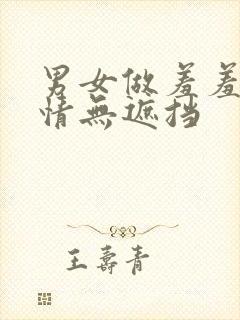 男女做羞羞
情無遮挡
王壽青